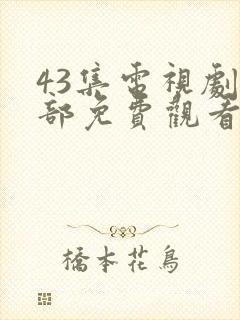 43集電視劇
部免費觀看
橋本花鳥